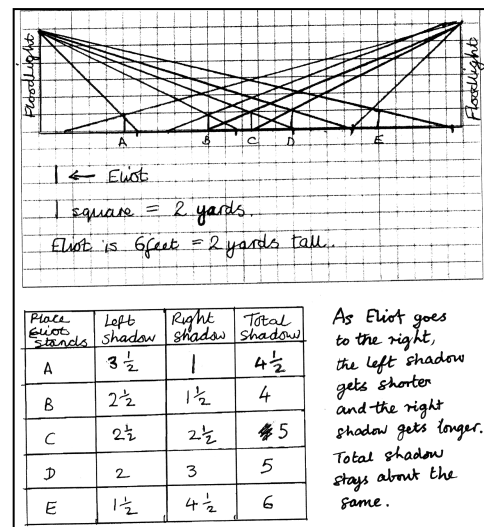 Floodlight
Floodlight
A B C D E
← Eliot
1 square = 2 yards.
Eliot is 6feet = 2 yards tall.
Place Eliot stands | Left shadow | Right shadow | Total shadow
A | 3 1/2 | 1 | 4 1/2
B | 2 1/2 | 1 1/2 | 4
C | 2 1/2 | 2 1/2 | 5
D | 2 | 3 | 5
E | 1 1/2 | 4 1/2 | 6
As Eliot goes
to the right,
the left shadow
gets shorter
and the right
shadow gets longer.
Total shadow
stays about the
same.